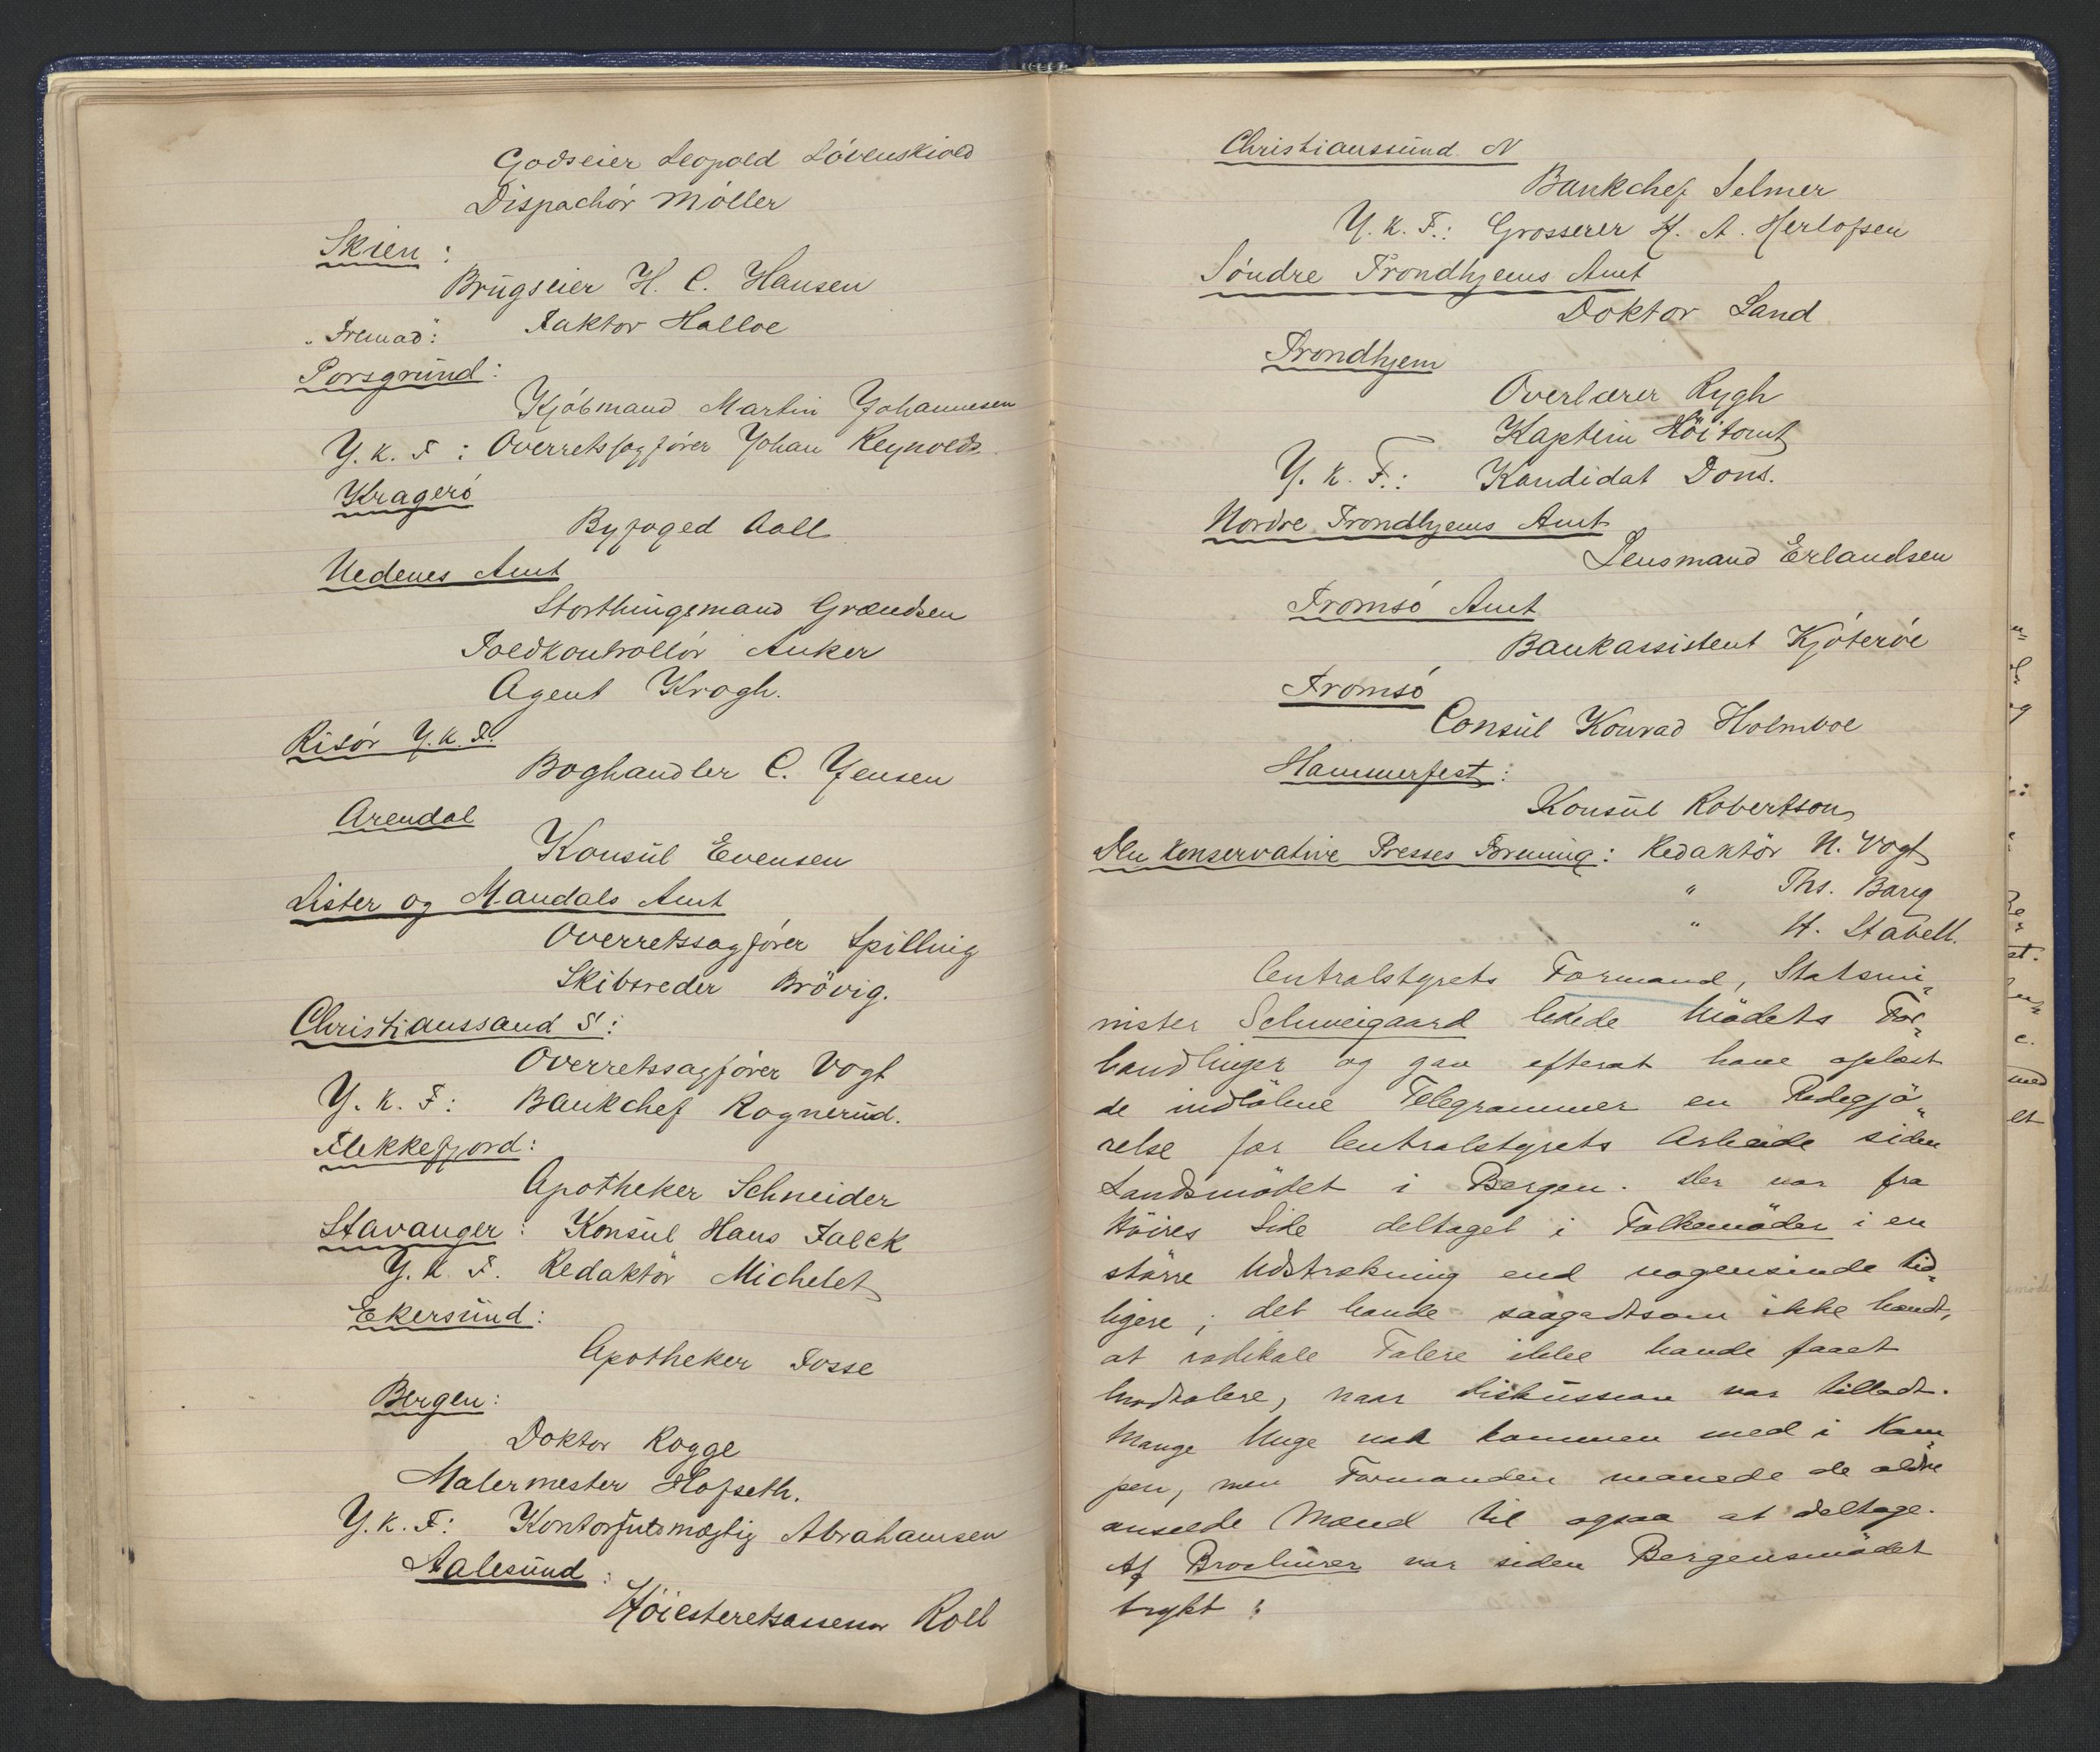 Godseier Leopold Lövenskiold
Dispachör Möller
Skien:
Brugseier H. C. Hansen
"Fremad": Faktor Halloe
Porsgrund:
Kjöbmand Martin Johannesen
Y. K. F: Overretssagförer Johan Reynolds
Kragerö
Byfoged Aall
Nedenes Amt
Storthingsmand Grændsen
Toldkontrollör Anker
Agent Krogh.
Risör Y. K. F.
Boghandler C. Jensen
Arendal
Konsul Evensen
Lister og Mandals Amt
Overretssagförer Spilling
Skibsreder Brövig.
Christianssand S:
Overretssagförer Vogt
Y. K. F: Bankchef Rognerud.
Flekkefjord:
Apotheker Schneider
Stavanger: Konsul Hans Falck
Y. K. F. Redaktör Michelet
Ekersund:
Apotheker Fosse
Bergen:
Doktor Rogge
Malermester Hofseth.
Y. K. F: Kontorfuldmægtig Abrahamsen
Aalesund:
Höiesteretsassessor Roll
Christianssund N
Bankchef Selmer
Y. K. F.: Grosserer H. A. Herlofsen
Söndre Trondhjems Amt
Doktor Sand
Trondhjem
Overlærer Rygh
Kaptein Höitomt
Y. K. F.: Kandidat Dons.
Nordre Trondhjems Amt
Lensmand Erlandsen
Tromsö Amt
Bankassistent Kjöteröe
Tromsö
Consul Konrad Holmboe
Hammerfest:
Konsul Robertson
Den konservative Presses Forening: Redaktör N. Vogt
" Ths. Bang
" H. Stabell.
Centralstyrets Formand, Statsmi-
nister Schweigaard ledede Mödets For-
handlinger og gav efterat have oplæst
de indløbne Telegrammer en Redegjö-
relse for Centralstyrets Arbeide siden
Landsmödet i Bergen. Der var fra
Höires Side deltaget i Folkemöder i en
större Udstrækning end nogensinde tid-
ligere; det havde saagodtsom ikke hændt,
at radikale Talere ikke havde faaet
Modtalere, naar Diskussion var tilladt.
Mange Unge var kommen med i Kam-
pen, men Formanden manede de ældre
ansede Mænd til ogsaa at deltage.
Af Brochurer var siden Bergensmödet
trykt: